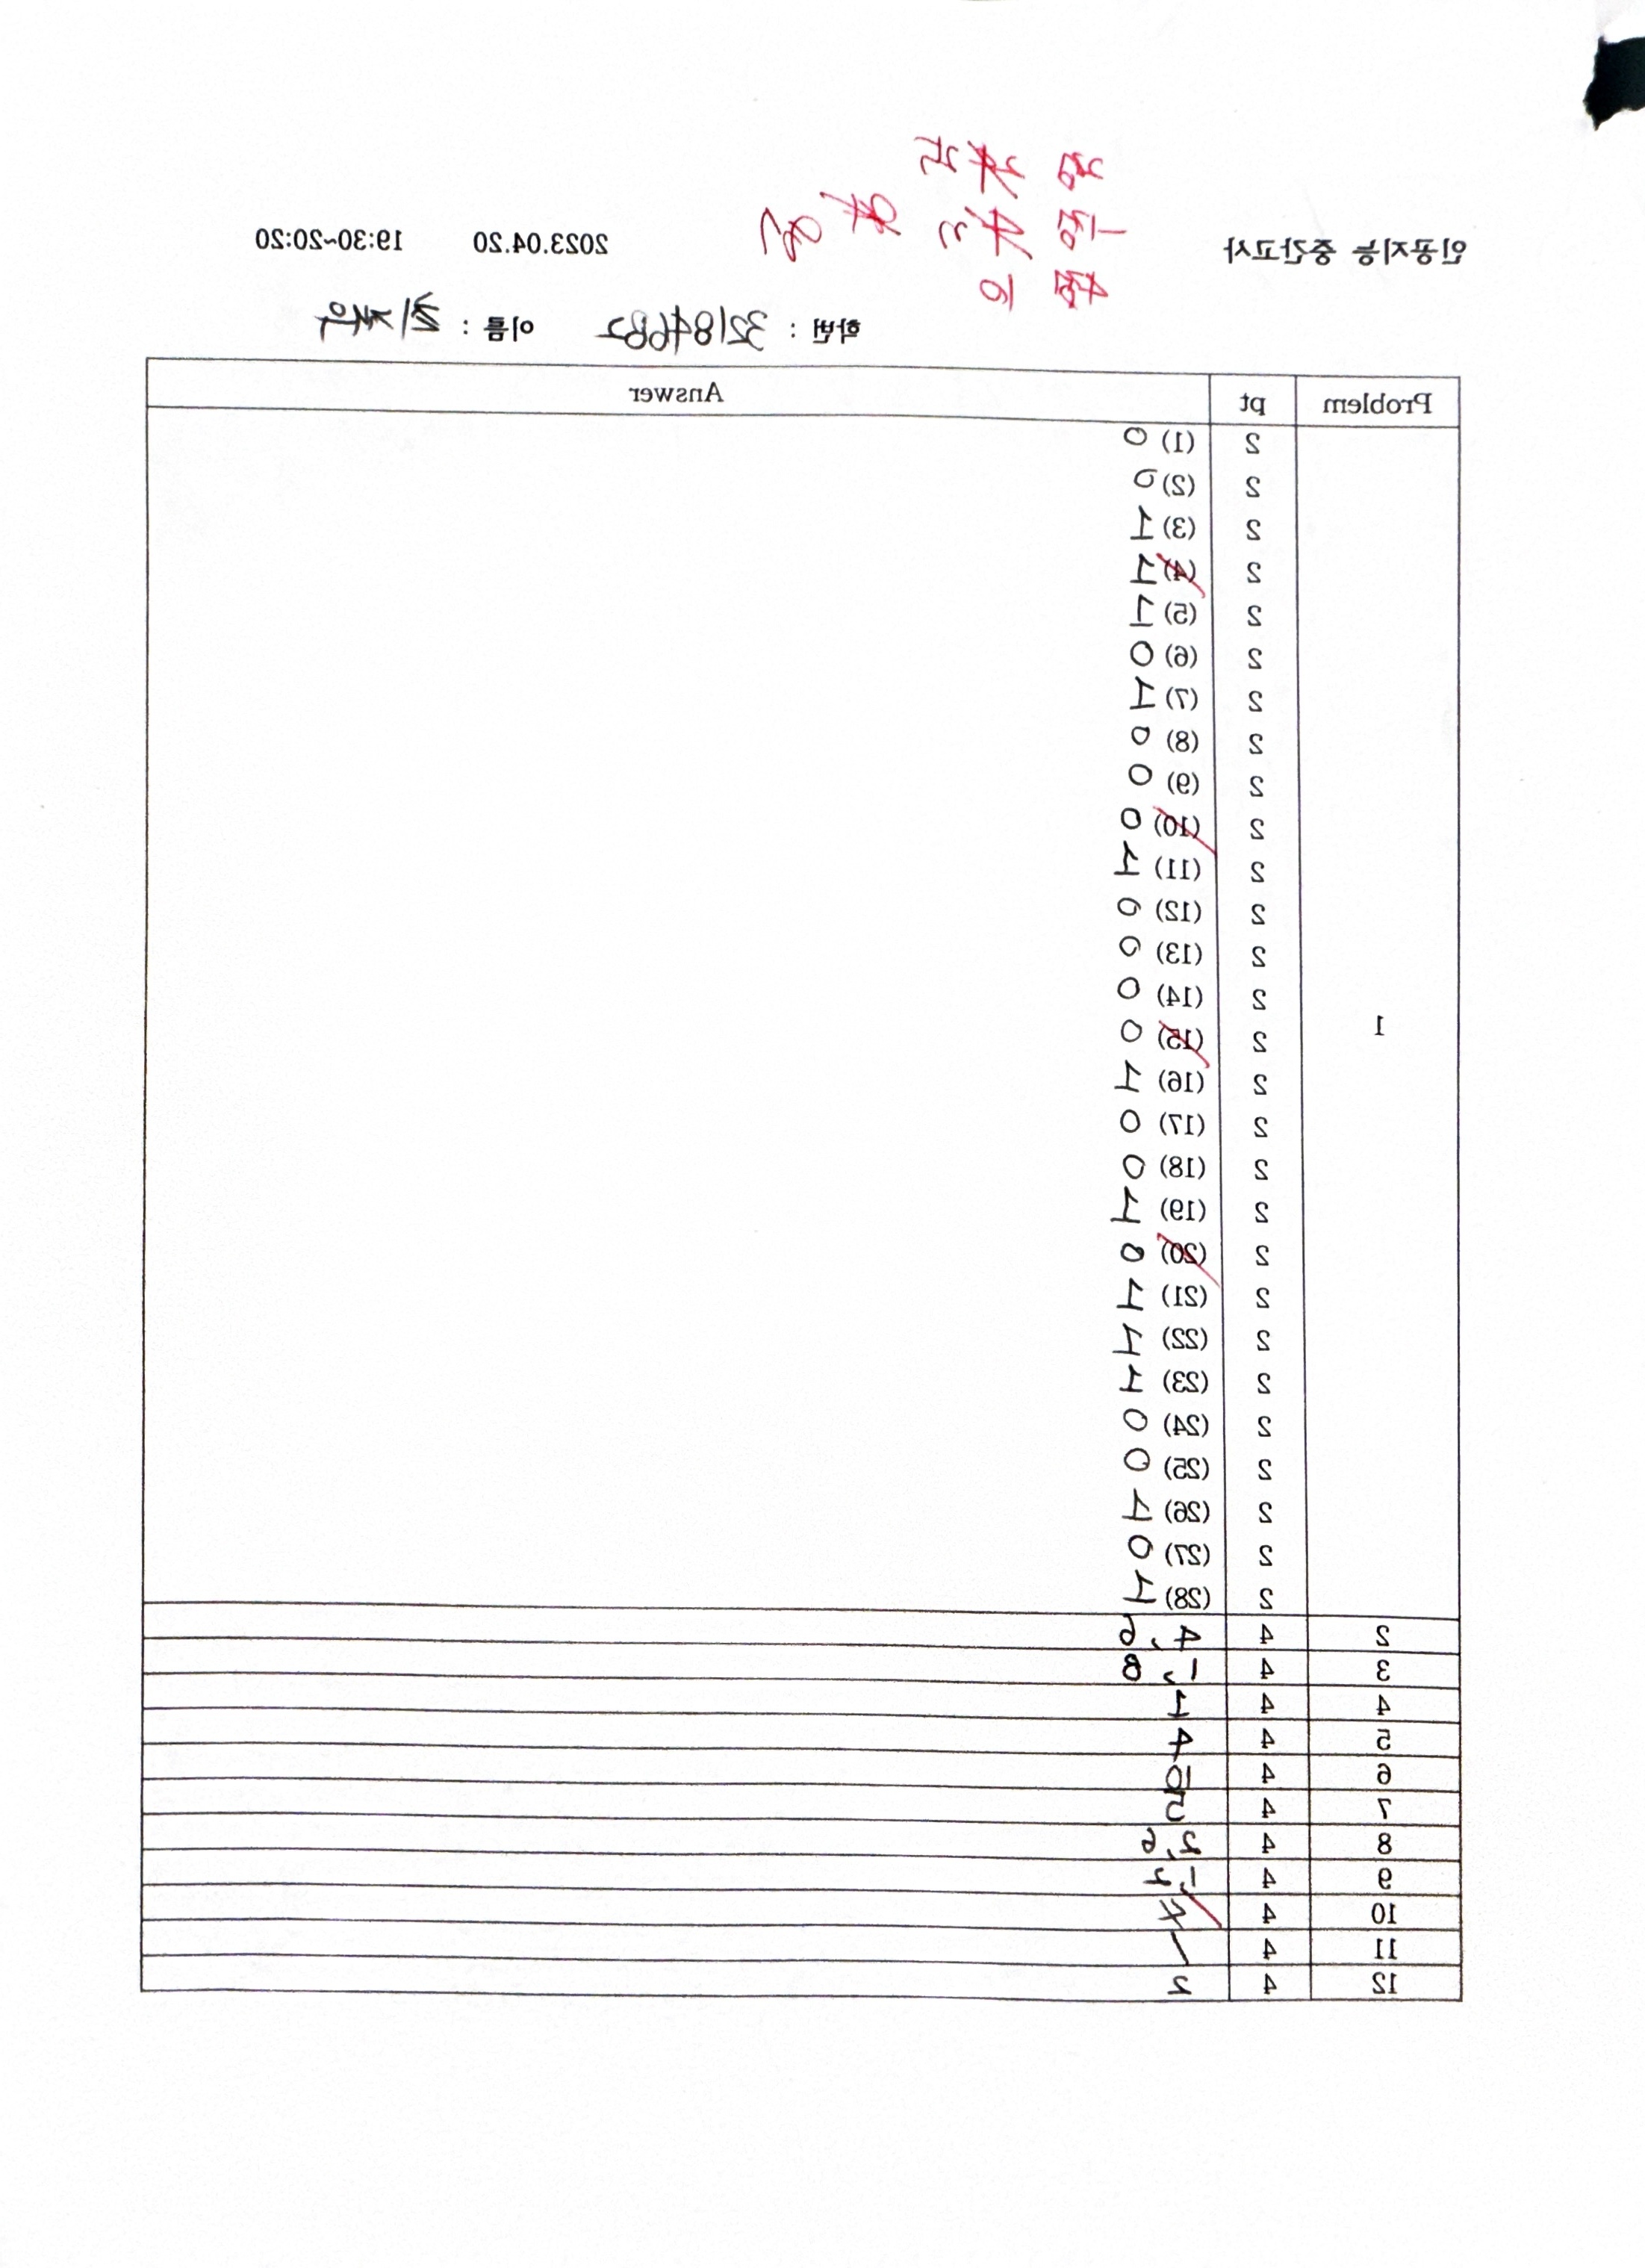 인공지능 중간고사 2023.04.20 19:30~20:20
학번 : 32184682 이름 : 최재우
Problem pt Answer
1
2 (1) 0
2 (2) 0
2 (3) 1
2 (4) 1
2 (5) 1
2 (6) 0
2 (7) 1
2 (8) 0
2 (9) 0
2 (10) 0
2 (11) 1
2 (12) 0
2 (13) 0
2 (14) 0
2 (15) 0
2 (16) 1
2 (17) 0
2 (18) 0
2 (19) 1
2 (20) 0
2 (21) 1
2 (22) 1
2 (23) 1
2 (24) 0
2 (25) 0
2 (26) 1
2 (27) 0
2 (28) 1
2 4 4, 6
3 4 1, 8
4 4 1
5 4 4
6 4
7 4
8 4 2, 6
9 4
10 4
11 4
12 4 2